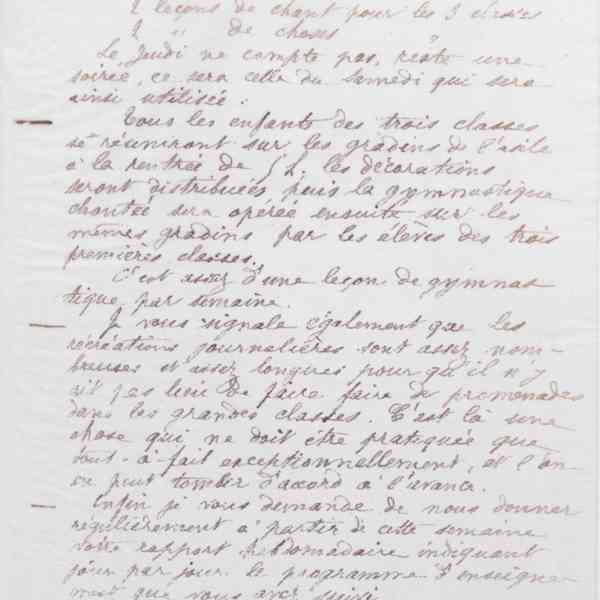 2 leçons de chant pour les 3 classes
2 " de choses "
Le Jeudi ne compte pas, reste une
soirée, ce sera celle du Samedi qui sera
ainsi utilisée :
Tous les enfants des trois classes
se réuniront sur les gradins de l'asile
à la rentrée de les décorations
seront distribuées puis la gymnastique
chantée sera opérée ensuite sur les
mêmes gradins par les élèves des trois
premières classes.
C'est assez d'une leçon de gymnas
tique par semaine.
Je vous signale également que les
récréations journalières sont assez nom-
breuses et assez longues pour qu'il n'y
ait pas lieu de faire faire de promenades
dans les grandes classes. C'est là une
chose qui ne doit être pratiquée que
tout-à-fait exceptionnellement, et l'on
ne peut tomber d'accord à l'avance.
Enfin je vous demande de nous donner
régulièrement à partir de cette semaine
votre rapport hebdomadaire indiquant
jour par jour le programme d'enseigne
ment que vous avez suivi